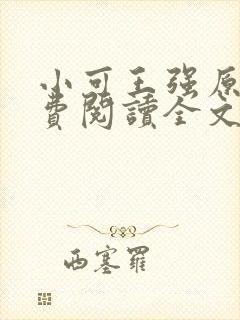 小可王强原
費閱讀全文
西塞羅